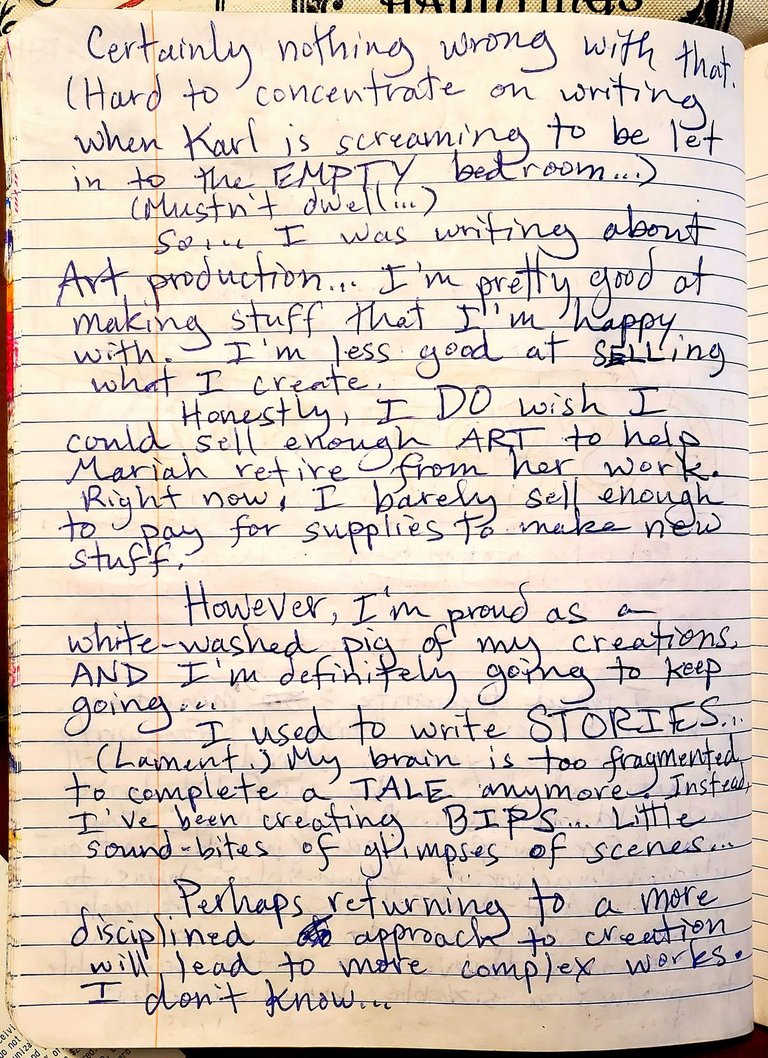 HAUNTINGS
Certainly nothing wrong with that.
(Hard to concentrate on writing
when Karl is screaming to be let
in to the EMPTY bedroom...)
(Mustn't dwell...)
So... I was writing about
Art production... I'm pretty good at
making stuff that I'm happy
with. I'm less good at SELLing
what I create.
Honestly, I DO wish I
could sell enough ART to help
Mariah retire from her work.
Right now, I barely sell enough
to pay for supplies to make new
stuff.
However, I'm proud as a
white-washed pig of my creations,
AND I'm definitely going to keep
going...
I used to write STORIES...
(Lament.) My brain is too fragmented
to complete a TALE anymore. Instead,
I've been creating BIPS... Little
sound-bites of glimpses of scenes...
Perhaps returning to a more
disciplined approach to creation
will lead to more complex works.
I don't know...